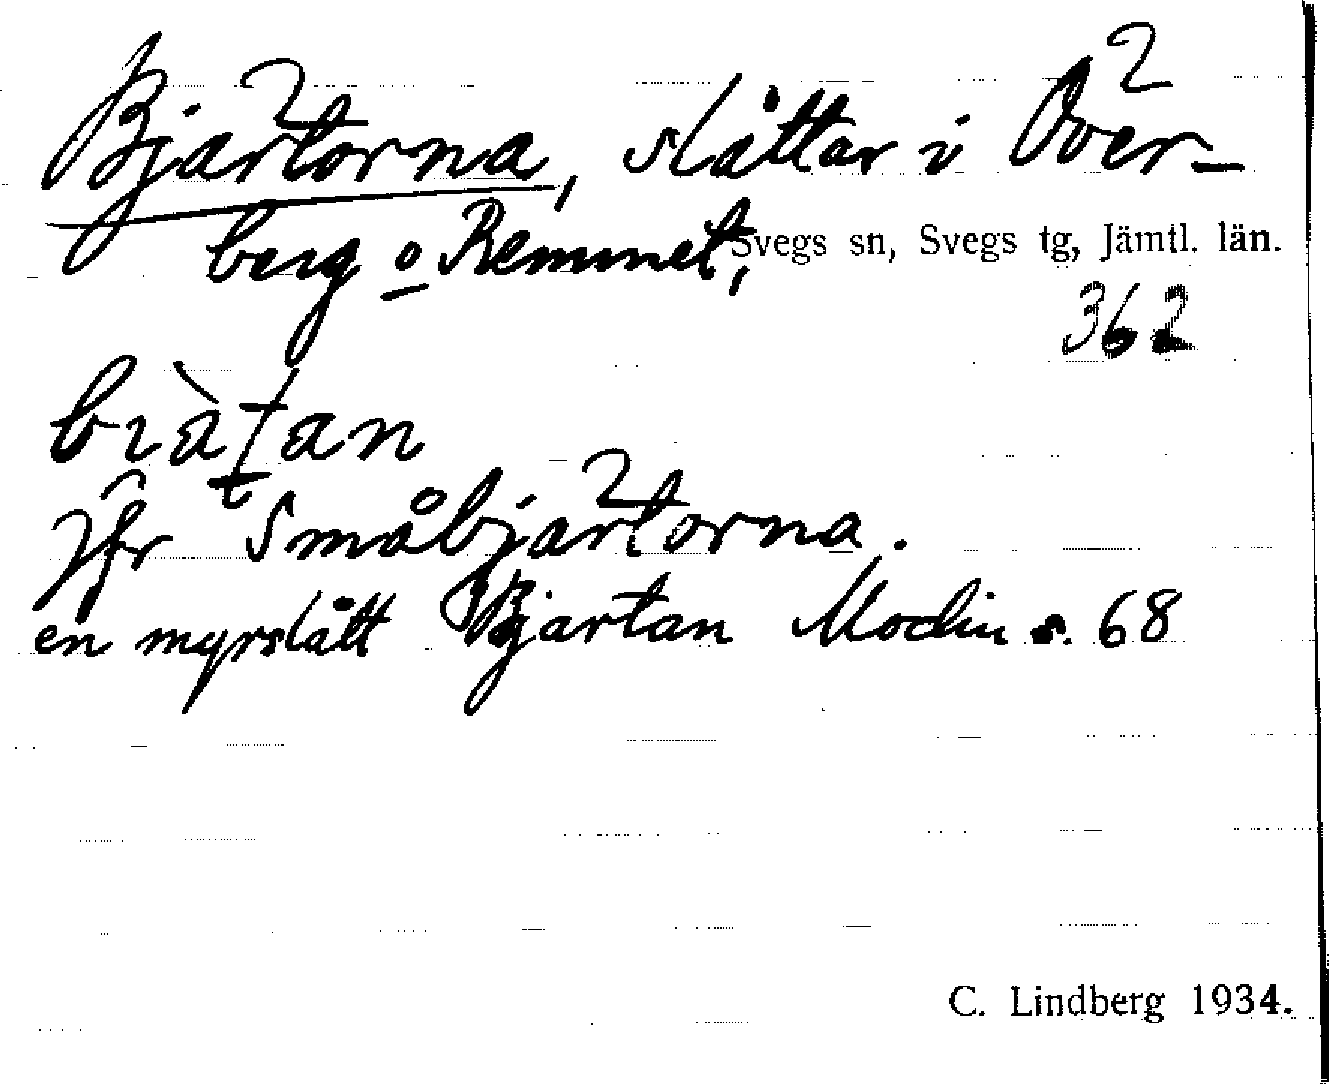 2
Bjartorna, slåttar i Över-
berg o Remmet, Svegs sn, Svegs tg, Jämtl. län.
362
Jfr Småbjartorna.
en myrslått Bjartan Modin s. 68
C. Lindberg 1934.